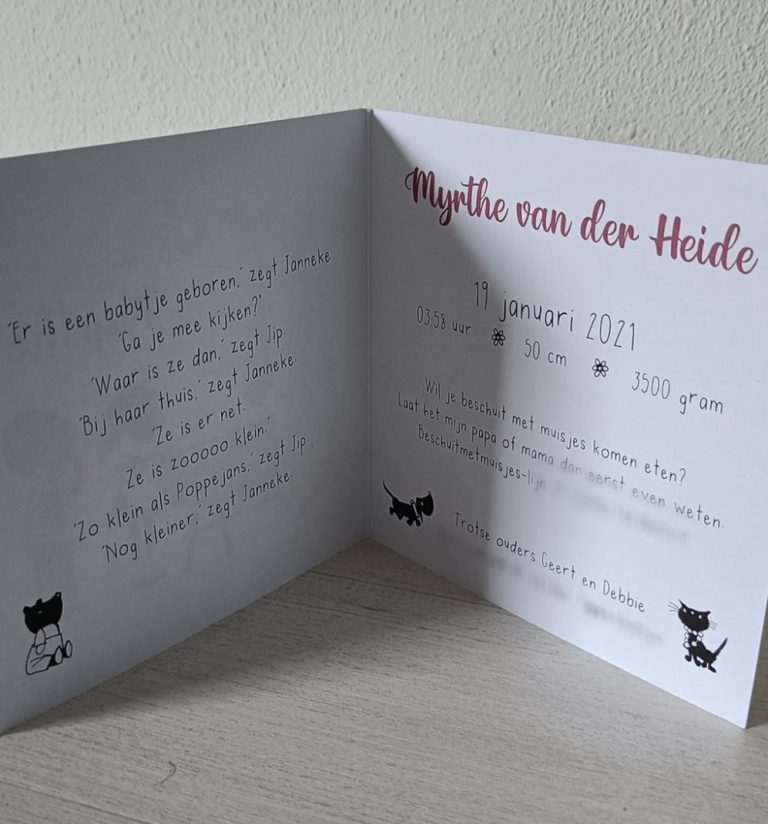 'Er is een babytje geboren,' zegt Janneke
'Ga je mee kijken?'
'Waar is ze dan,' zegt Jip.
'Bij haar thuis,' zegt Janneke.
'Ze is er net.
Ze is zooooo klein.'
'Zo klein als Poppejans,' zegt Jip.
'Nog kleiner,' zegt Janneke.
Myrthe van der Heide
19 januari 2021
03:58 uur 50 cm 3500 gram
Wil je beschuit met muisjes komen eten?
Laat het mijn papa of mama dan eerst even weten.
Beschuitmetmuisjes-lijn
Trotse ouders Geert en Debbie